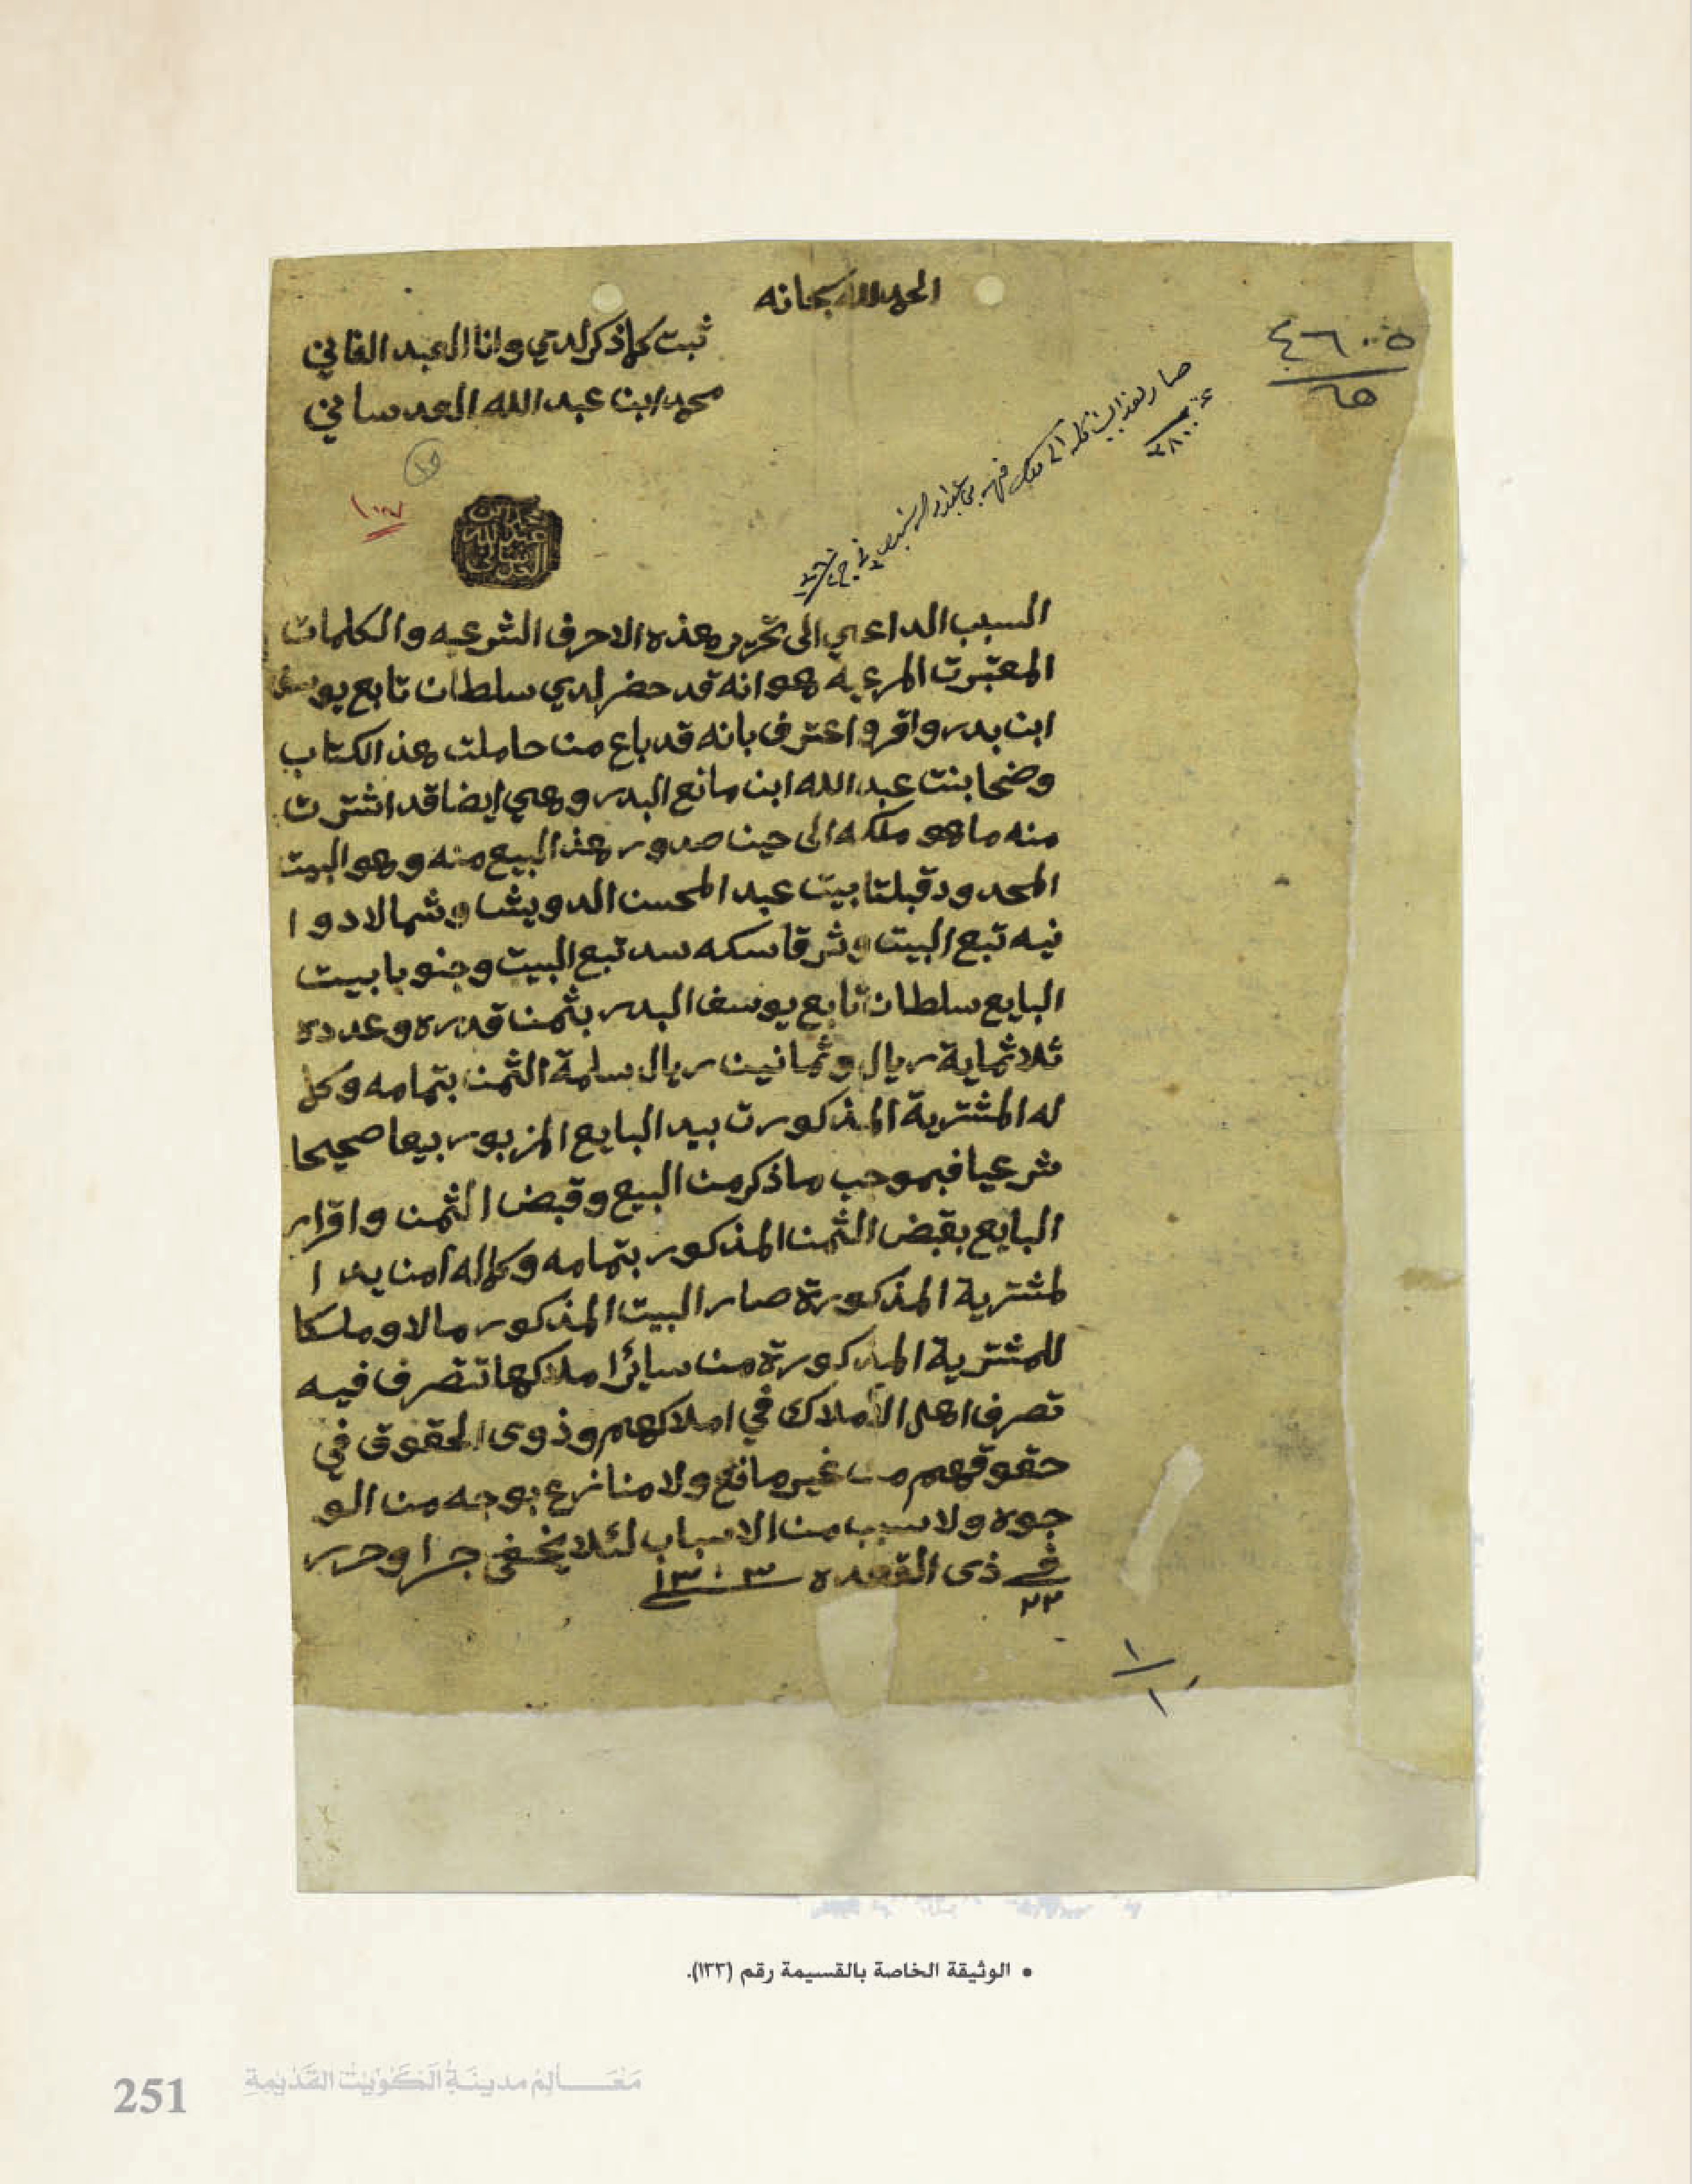 الحمد لله سبحانه
ثبت كما ذكر لدي وانا العبد الفاني
محمد ابن عبد الله العدساني
٤٦٠٠٥
٦٥
صار هذا البيت كله الى ملك فهد
٢٨٠٠
محمد بن عبد الله العدساني
السبب الداعي الى تحرير هذه الاحرف الشرعيه والكلمات
المعتبرت المرعيه هو انه قد حضر لدي سلطان تابع يوسف
ابن بدر واقر واعترف بانه قد باع من حاملت هذ الكتاب
وضحا بنت عبد الله ابن مانع البدر وهي ايضا قد اشترت
منه ما هو ملكه الى حين صدور هذ البيع منه وهو البيت
المحدود قبلتا بيت عبد المحسن الدويش وشمالا دوا
نيه تبع البيت وشرقا سكه سد تبع البيت وجنوبا بيت
البايع سلطان تابع يوسف البدر بثمن قدره وعدده
ثلاثماية ريال وثمانين ريال سلمة الثمن بتمامه وكل
له المشترية المذكورت بيد البايع المزبور بيعا صحيحا
شرعيا فبموجب ما ذكر من البيع وقبض الثمن واقرار
البايع بقبض الثمن المذكور بتمامه وكماله من يد ا
لمشترية المذكورة صار البيت المذكور مالا وملكا
للمشترية المذكورة من ساير املاكها تتصرف فيه
تصرف اهل الاملاك في املاكهم وذوى الحقوق في
حقوقهم من غير مانع ولا منازع بوجه من الو
جوه ولا سبب من الاسباب لئلا يخفى جرا وحرر
في ذى القعده ١٣٠٣
٢٣
١
١
• الوثيقة الخاصة بالقسيمة رقم (١٣٣).
مَعَـالِمُ مدينَةِ الكُوَيْت القَدْيِمةِ
251